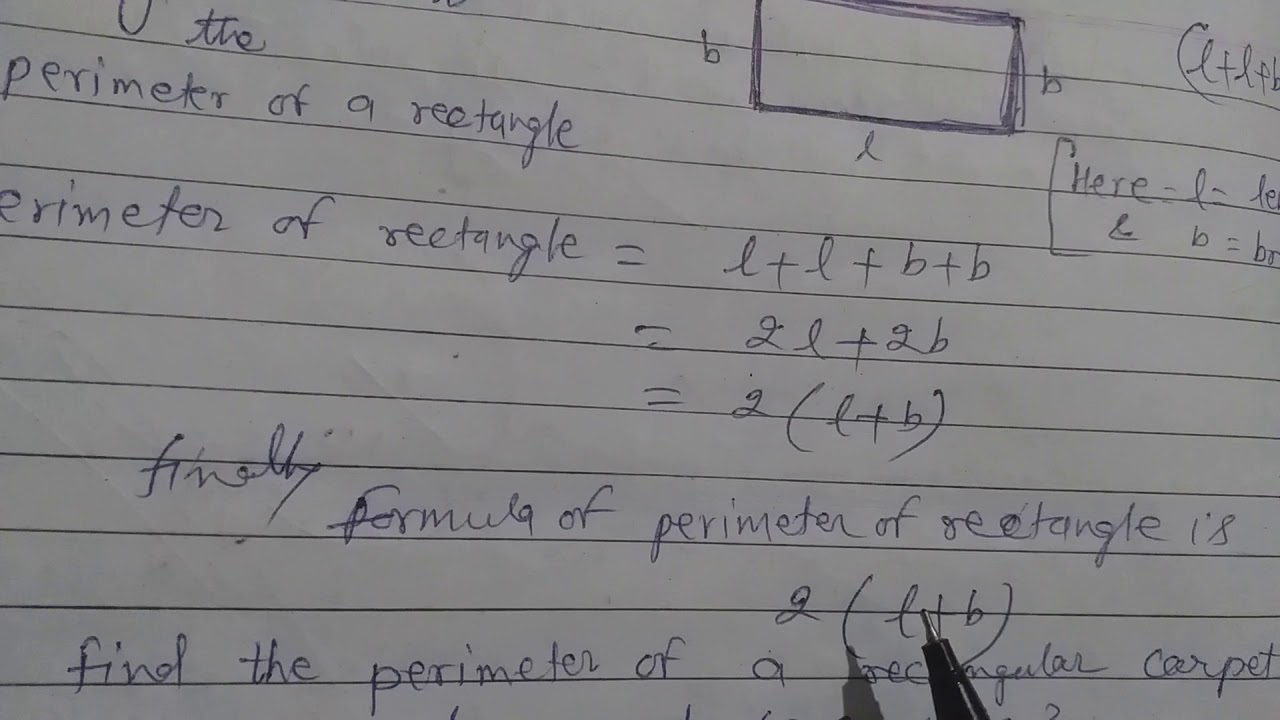 the
b
b
(l+l+b
perimeter of a rectangle
l
Here - l = le
& b = br
erimeter of rectangle = l+l+b+b
= 2l+2b
= 2(l+b)
finally
Formula of perimeter of rectangle is
2(l+b)
find the perimeter of a rectangular carpet